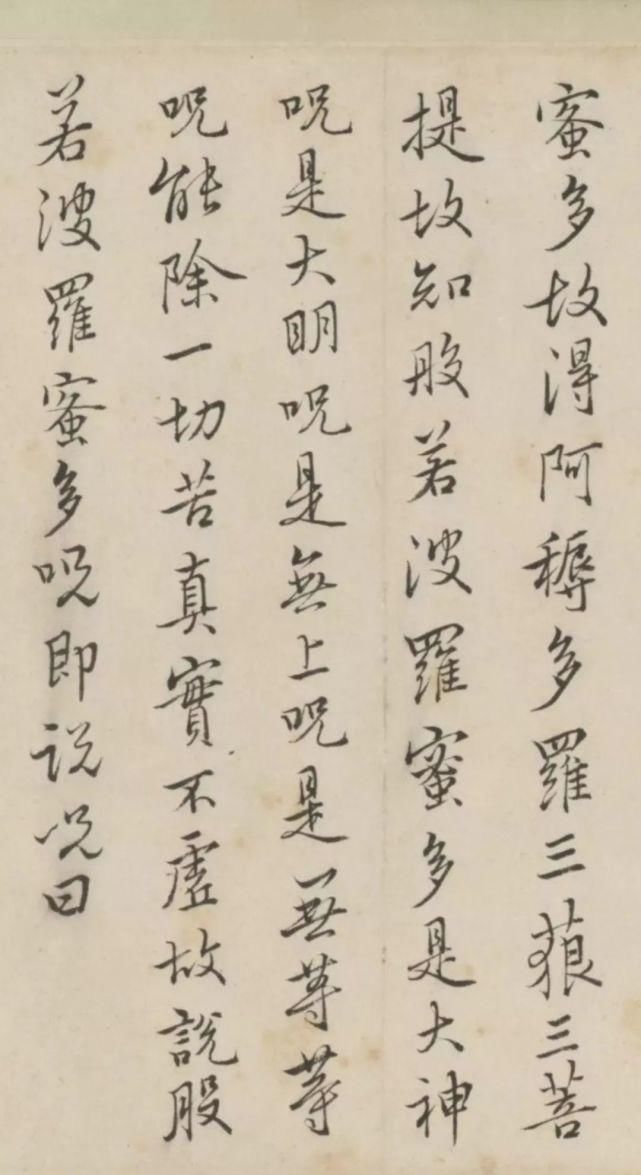 蜜多故得阿耨多羅三藐三菩
提故知般若波羅蜜多是大神
呪是大明呪是無上呪是無等等
呪能除一切苦真實不虛故說般
若波羅蜜多呪即說呪曰